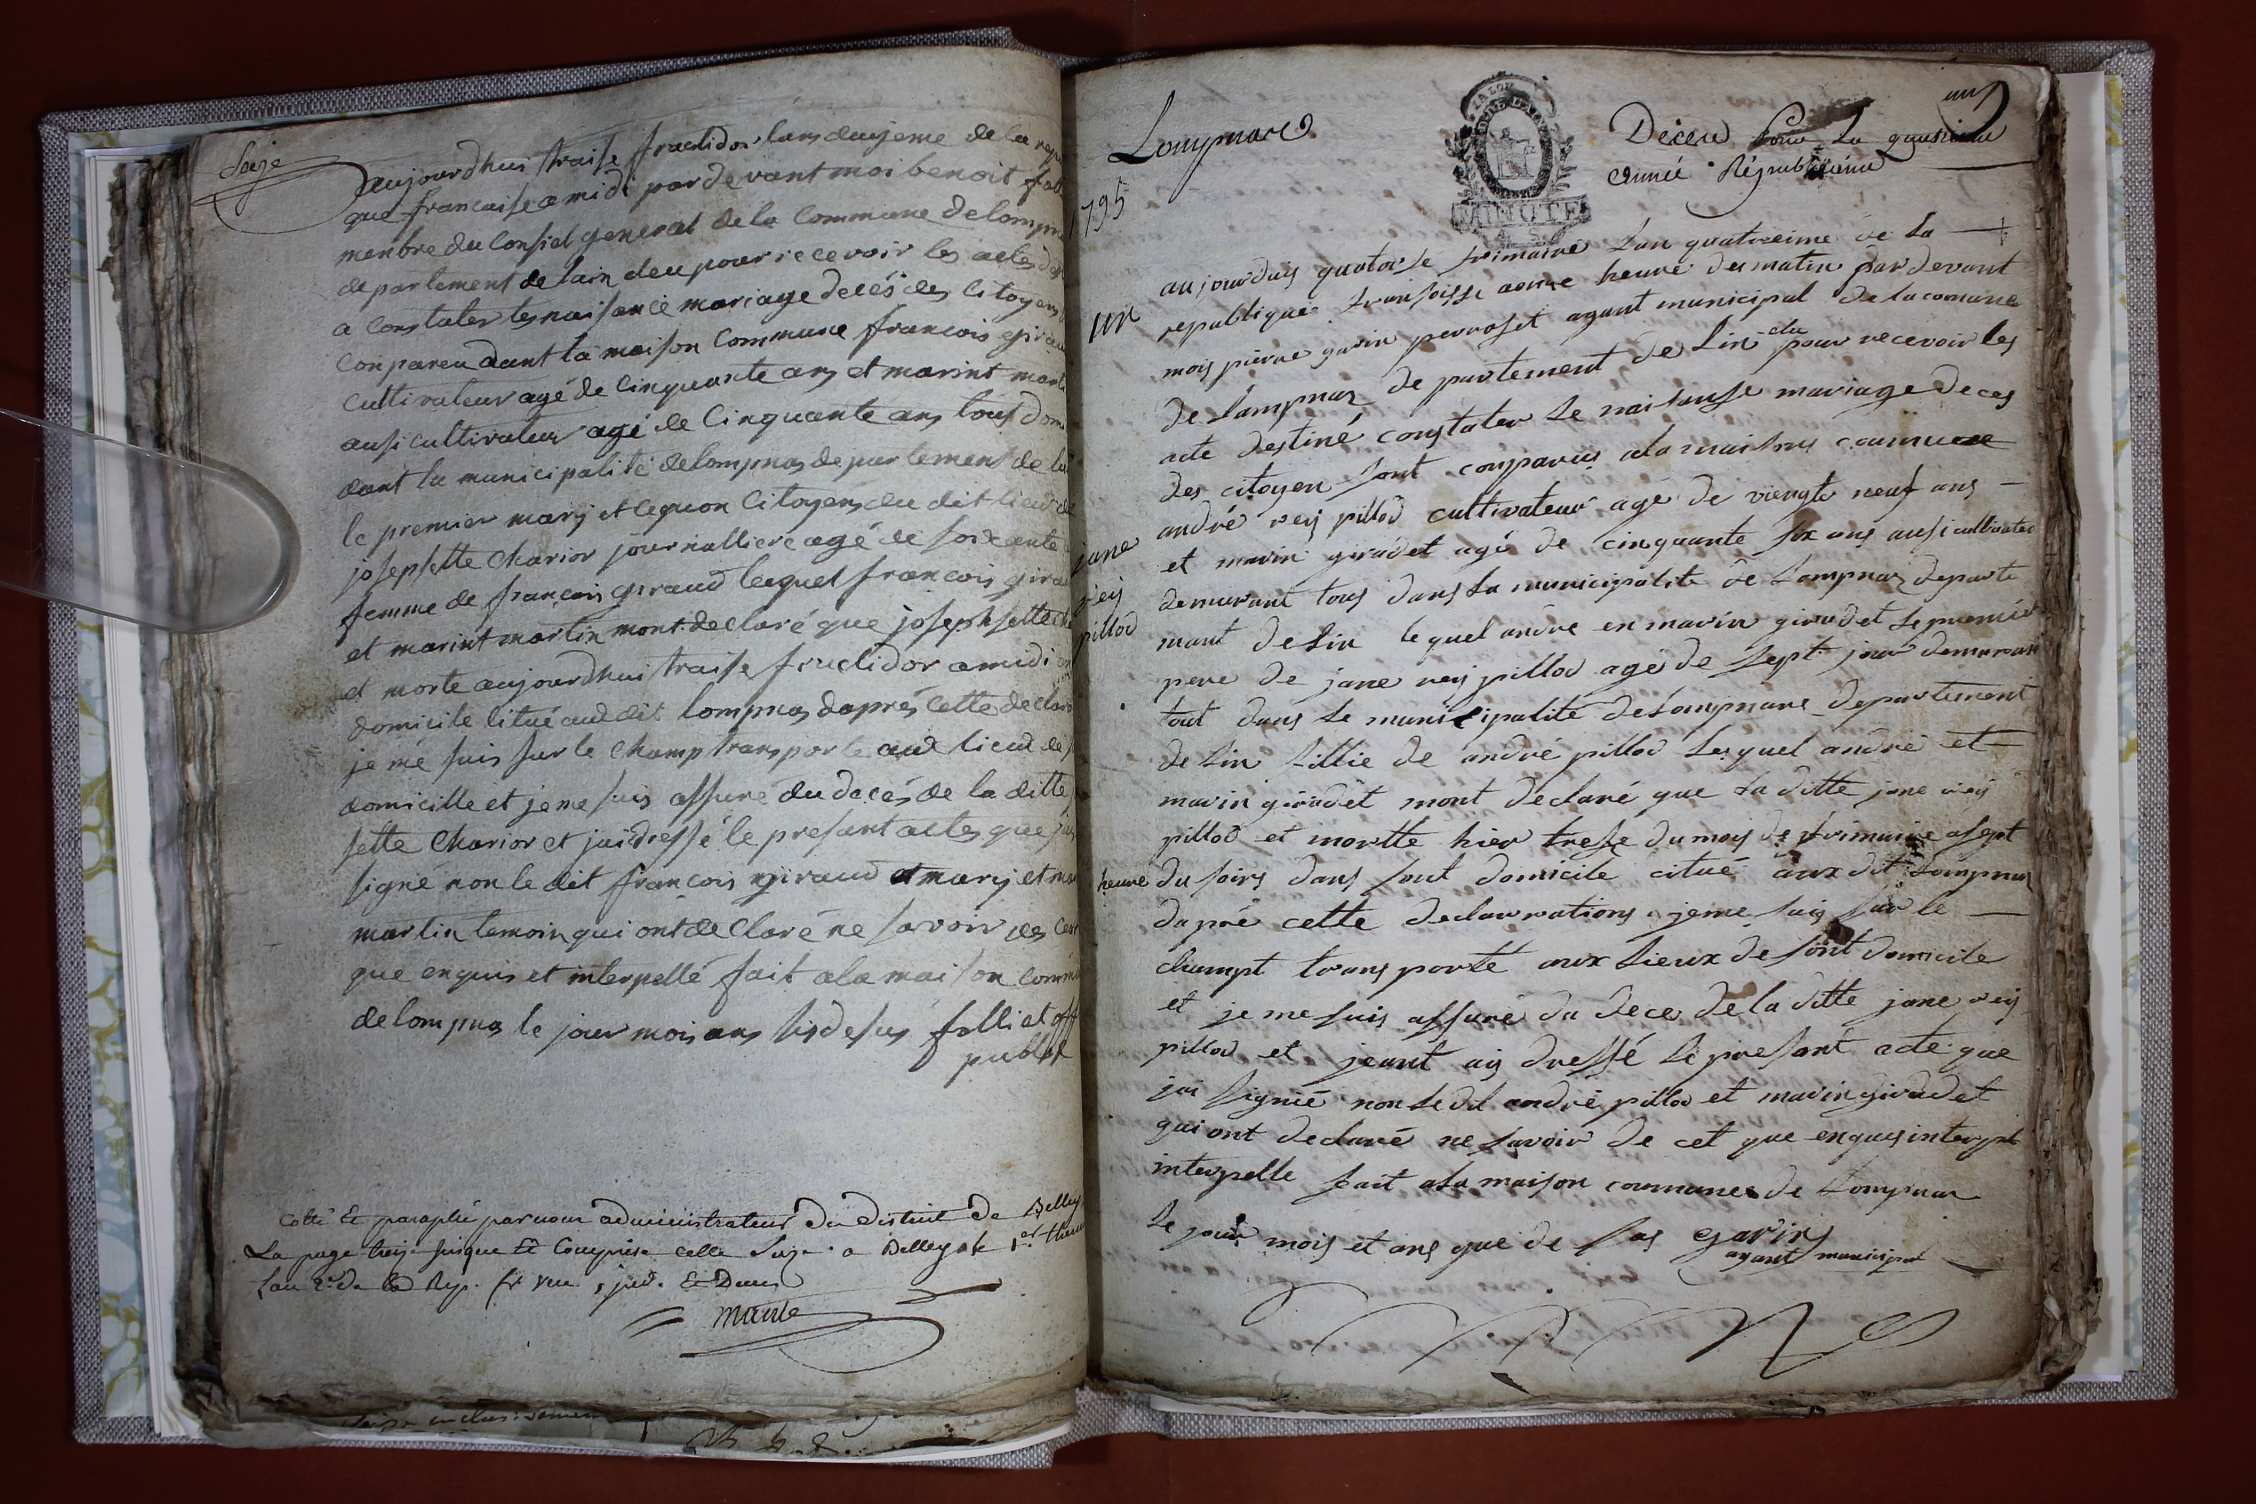 Saize
aujourdhui traise fructidor lans deuxjeme de la repu
que francaise a midi par devant moi benoit foll
menbre du Consiel general de la Commune de lompn
departement de lain eleu pour recevoir les actes d
a Constater les naisance mariage decés des Citoyens
Conpareu dant la maison Commune francois girau
Cultivateur agé de Cinquante ans et marint mart
ausi cultivateur agé de Cinquante ans tous dom
dant la municipalité de lompnas departement de lai
le premier marij et legeon Citoyens du dit lieu de
josepsette Charior journalliere agé de soixante
femme de françois giraud lequel francois girau
et marint martin mont declaré que josephsette Ch
et morte aujourdhui traise fructidor a midi
domicile citué aud dit lompnas daprés Cette declara
je mé suis sur le Champ transporté aud lieud de s
domicille et je me suis assuré du decés de la ditte
sette Charior et jaidressé le presant actes que jai
signé non le dit francois giraud et marij et mar
martin temoin qui ont declaré ne savoir de Ceste
que enquis et interpellé fait a la maison Commu
de lompnas le jour mois ans sis desus folliet off
publot
Cotté & paraphé par nous administrateur du district de Belley
La page treize jusque & Comprise celle Saize a Belley le 1er therm
Lan 2e de la Rep. fr une, ind. &
1795
un
Lompnare
Décéu Pour La quatrieme
année Républiciéne
un
aujourduis quatorse frimaire Lan quatreeime de La
republique fransoisse aonse heure du matin par devant
mois pierre garin perroset agant municipal de la comune
de Lompnaz departement de Lin elu pour recevoir les
acte destiné constater le naisanse mariage deces
des citoyen sont comparus a la maisons commune
andré reij pillod cultivateur agé de viengte neuf ans
et marin giradet agé de cinquante six ans ausi cultivateu
demurant tous dans La municipalité de Lompnaz departe
mant de Lin lequel andre en marin giradet le premier
pere de jane reij pillod agé de sept jour demurant
tout dans le municipalité de Lompnare departement
de Lin fillie de andré pillod lequel andré et
marin giradet mont declaré que La ditte jane reij
pillod et mortte hier trese du mois de frimaire a sept
heure du soirs dans sont domicile citué aux dit Lompnas
daprè cette declarrations je me suis sur le
champt transporté aux Lieux de sont domicile
et je me suis assuré du dece de la ditte jane reij
pillod et jeant aij dressé le presant acte que
jai signié non le dit andré pillod et marin giradet
qui ont declaré ne savoir de cet que enquis interpt
interpelle fait a La maison communes de Lompnas
Le jour mois et ans que de sus garin
agant municipal
jane
reij
pillod